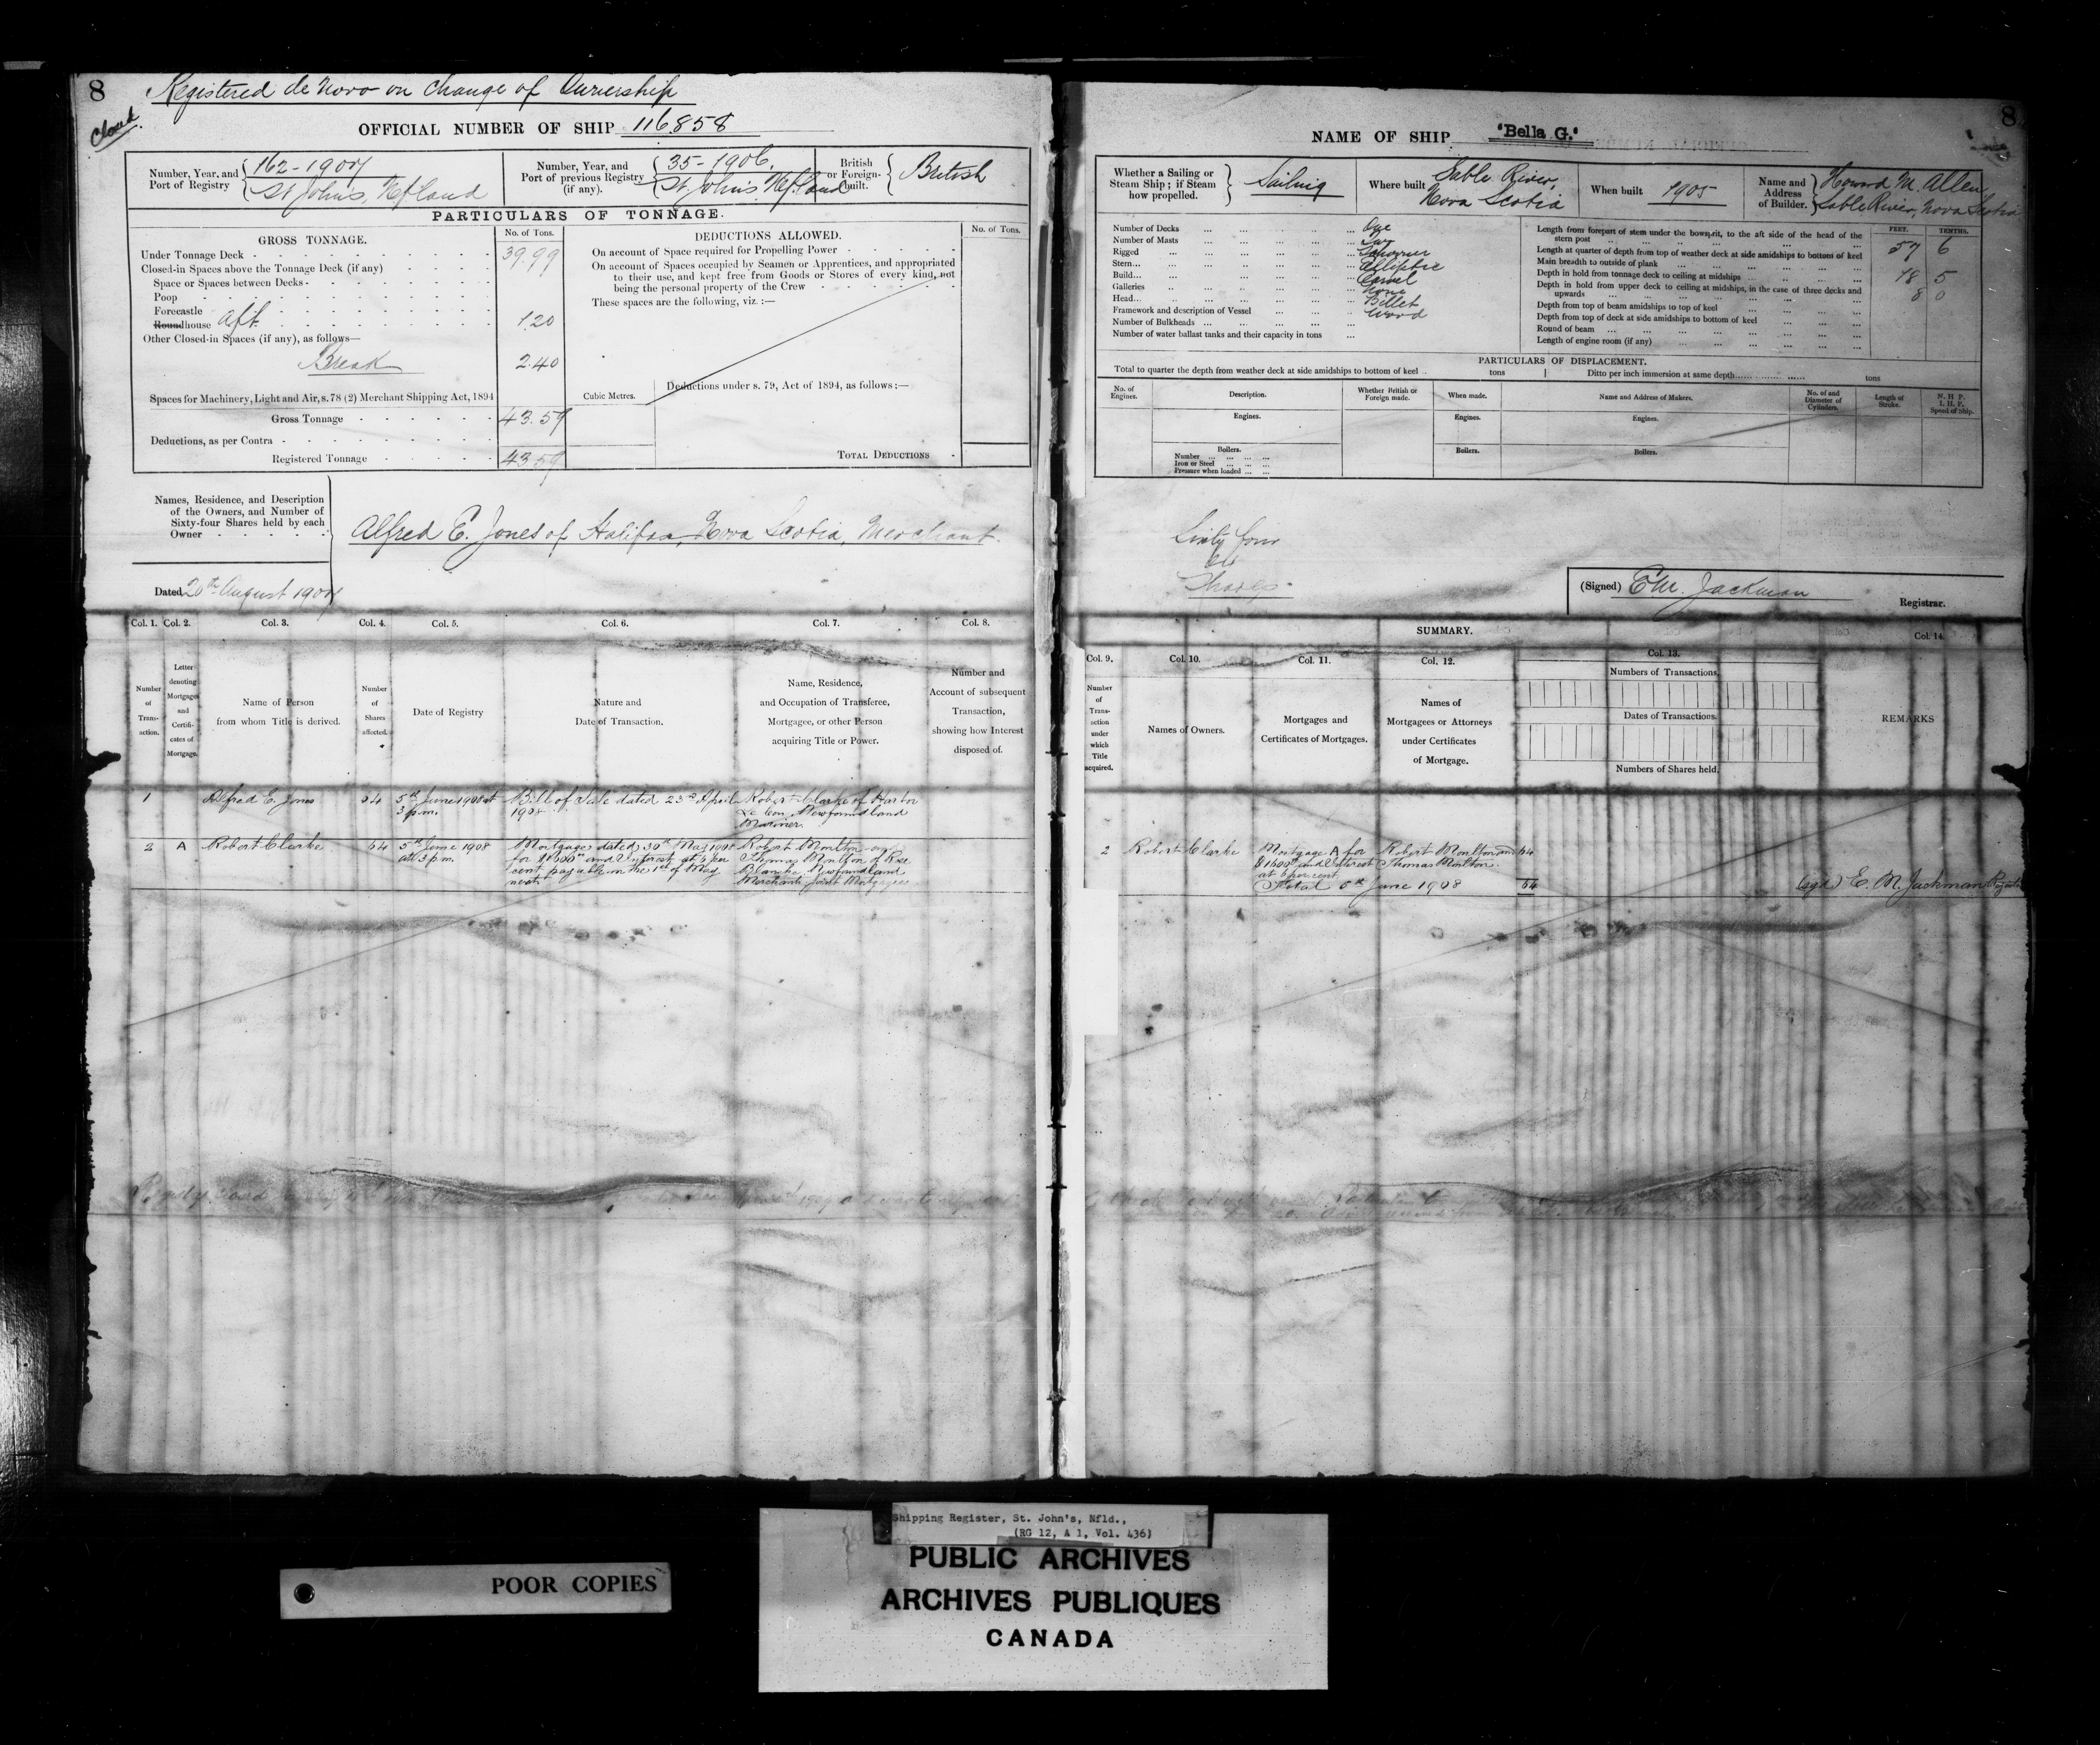 8
Closed.
Registered de Novo on Change of Ownership
OFFICIAL NUMBER OF SHIP 116858
Number, Year, and Port of Registry
162-1907
St John's, Nfland
Number, Year, and Port of previous Registry (if any).
35-1906.
St. John's Nfland
British or Foreign-Built.
British
PARTICULARS OF TONNAGE.
GROSS TONNAGE.
No. of Tons.
Under Tonnage Deck - 39.99
Closed-in Spaces above the Tonnage Deck (if any)
Space or Spaces between Decks -
Poop
Forecastle
Roundhouse Aft. 1.20
Other Closed-in Spaces (if any), as follows—
Break 2.40
Spaces for Machinery, Light and Air, s. 78 (2) Merchant Shipping Act, 1894
Gross Tonnage 43.59
Deductions, as per Contra -
Registered Tonnage 43.59
DEDUCTIONS ALLOWED.
No. of Tons.
On account of Space required for Propelling Power
On account of Spaces occupied by Seamen or Apprentices, and appropriated
to their use, and kept free from Goods or Stores of every kind, not
being the personal property of the Crew
These spaces are the following, viz. :—
Cubic Metres.
Deductions under s. 79, Act of 1894, as follows :—
TOTAL DEDUCTIONS
Names, Residence, and Description
of the Owners, and Number of
Sixty-four Shares held by each
Owner
Alfred E. Jones of Halifax, Nova Scotia, Merchant.
Dated 20th August 1907
Col. 1. Col. 2. Col. 3. Col. 4. Col. 5. Col. 6. Col. 7. Col. 8.
Number of Trans-action.
Letter denoting Mortgages and Certifi-cates of Mortgage.
Name of Person from whom Title is derived.
Number of Shares affected.
Date of Registry
Nature and Date of Transaction.
Name, Residence, and Occupation of Transferee, Mortgagee, or other Person acquiring Title or Power.
Number and Account of subsequent Transaction, showing how Interest disposed of.
1 Alfred E. Jones 64 5th June 1908 at 3 p.m. Bill of Sale dated 23rd April 1908 Robert Clarke of Harbor Newfoundland Mariner.
2 A Robert Clarke 64 5th June 1908 at 3 p.m. Mortgage dated 30th May 1908 for $1600 and Interest at 6 per cent payable on the 1st of May next Robert Moulton and Thomas Moulton of Rose Blanche Newfoundland Merchants Joint Mortgagees
8
NAME OF SHIP "Bella G."
Whether a Sailing or Steam Ship ; if Steam how propelled.
Sailing
Where built
Sable River, Nova Scotia
When built
1905
Name and Address of Builder.
Howard M. Allen
Sable River, Nova Scotia
Number of Decks One
Number of Masts Two
Rigged Schooner
Stern Elliptic
Build Carvel
Galleries None
Head Billet
Framework and description of Vessel Wood
Number of Bulkheads
Number of water ballast tanks and their capacity in tons
FEET. TENTHS.
Length from forepart of stem under the bowsprit, to the aft side of the head of the
stern post 57 6
Length at quarter of depth from top of weather deck at side amidships to bottom of keel
Main breadth to outside of plank 18 5
Depth in hold from tonnage deck to ceiling at midships 8 0
Depth in hold from upper deck to ceiling at midships, in the case of three decks and
upwards
Depth from top of beam amidships to top of keel
Depth from top of deck at side amidships to bottom of keel
Round of beam
Length of engine room (if any)
PARTICULARS OF DISPLACEMENT.
Total to quarter the depth from weather deck at side amidships to bottom of keel tons
Ditto per inch immersion at same depth tons
No. of Engines.
Description.
Whether British or Foreign made.
When made.
Name and Address of Makers.
No. of and Diameter of Cylinders.
Length of Stroke.
N. H. P. I. H. P. Speed of Ship.
Engines. Engines. Engines.
Boilers. Boilers. Boilers.
Number
Iron or Steel
Pressure when loaded
Sixty four
Shares
(Signed) E M. Jackman
Registrar.
SUMMARY.
Col. 9. Col. 10. Col. 11. Col. 12. Col. 13. Col. 14
Number of Trans-action under which Title acquired.
Names of Owners.
Mortgages and Certificates of Mortgages.
Names of Mortgagees or Attorneys under Certificates of Mortgage.
Numbers of Transactions.
Dates of Transactions.
Numbers of Shares held.
REMARKS
2 Robert Clarke Mortgage A for $1600 and Interest at 6 per cent Robert Moulton and Thomas Moulton. 64
Total 5th June 1908 64
(sgd) E. M. Jackman
Shipping Register, St. John's, Nfld.,
(RG 12, A 1, Vol. 436)
POOR COPIES
PUBLIC ARCHIVES
ARCHIVES PUBLIQUES
CANADA